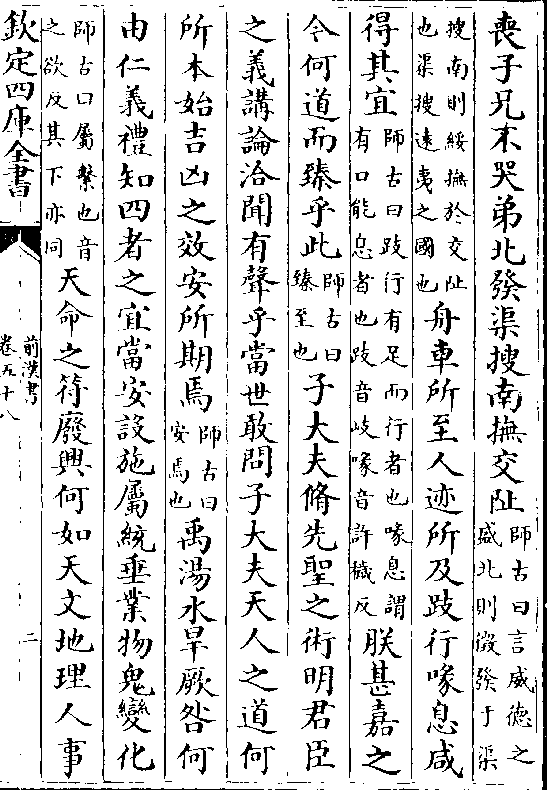 喪子兄不哭弟北發渠搜南撫交阯師古曰言威德之盛北則徴發于渠
搜南則綏撫於交阯也渠搜逺夷之國也舟車所至人迹所及跂行喙息咸
得其宜師古曰跂行有足而行者也喙息謂有口能息者也跂音岐喙音許穢反朕甚嘉之
今何道而臻乎此師古曰臻至也子大夫脩先聖之術明君臣
之義講論洽聞有聲乎當世敢問子大夫天人之道何
所本始吉凶之效安所期焉師古曰安焉也禹湯水旱厥咎何
由仁義禮知四者之宜當安設施屬統垂業物鬼變化
師古曰屬繫也音之欲反其下亦同天命之符廢興何如天文地理人事
欽定四庫全書
前漢書
卷五十八
二